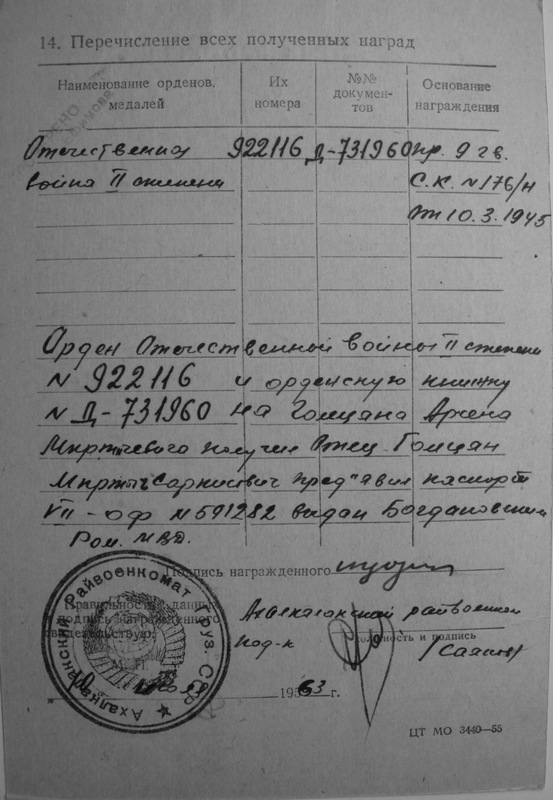 14. Перечисление всех полученных наград
Наименование орденов, медалей
Их номера
№№ докумен-тов
Основание награждения
Отечественная 922116 Д-731960 пр. 9 гв.
война II степени С.К. N 176/н
от 10.3.1945
Орден Отечественной войны II степени
N 922116 и орденскую книжку
N Д-731960 на Гомцана Арсена
Мкртычевича получил Отец Гомцан
Мкртыч Саркисович предъявил паспорт
VII-оф N 591282 выдан Богдановским
Ром. МВД.
Подпись награжденного
Ахалкалакский райвоенком
Правильность данных
и подпись награжденного
свидетельствую:
под-к
Должность и подпись
М. П.
1963 г.
Ахалкалакский Райвоенкомат Груз. ССР
ЦТ МО 3440—55